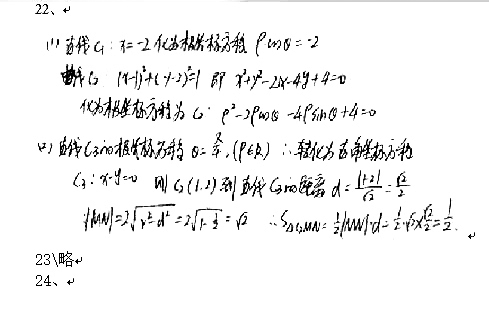 22、
(1) 直线C₁: x=-2 化为极坐标方程 ρcosθ=-2
曲线C₂: (x-1)²+(y-2)²=1 即 x²+y²-2x-4y+4=0
化为极坐标方程为 C₂: ρ²-2ρcosθ-4ρsinθ+4=0
(2) 直线C₃的极坐标方程 θ=π/4, (ρ∈R) ∴转化为直角坐标方程
C₃: x-y=0 则C₂(1.2)到直线C₃的距离 d=|1-2|/√2=√2/2
|MN|=2√(r²-d²)=2√(1-½)=√2 ∴S△C₂MN=½|MN|·d=½·√2×√2/2=½.
23\略
24、